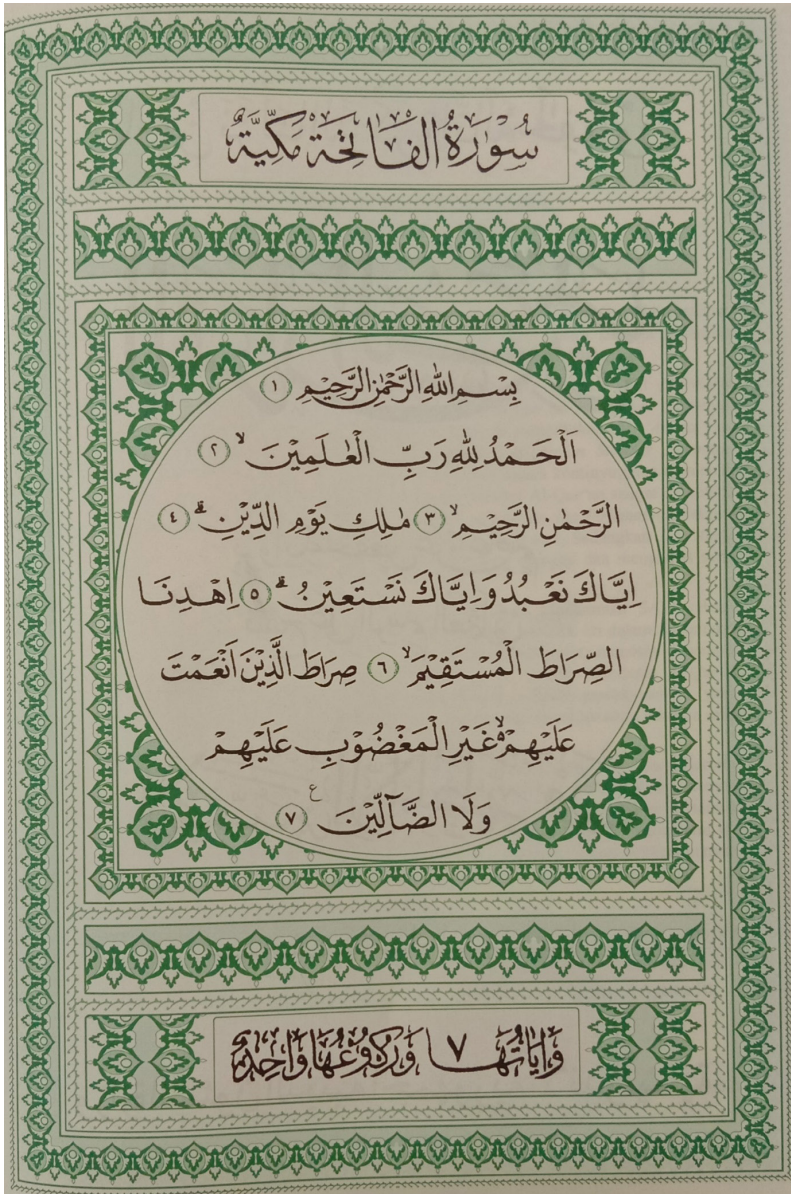 سُوْرَةُ الْفَاتِحَةِ مَكِّيَّةٌ
بِسْمِ اللّٰهِ الرَّحْمٰنِ الرَّحِيْمِ ١
اَلْحَمْدُ لِلّٰهِ رَبِّ الْعٰلَمِيْنَ ۙ ٢
الرَّحْمٰنِ الرَّحِيْمِ ۙ ٣ مٰلِكِ يَوْمِ الدِّيْنِ ۗ ٤
اِيَّاكَ نَعْبُدُ وَاِيَّاكَ نَسْتَعِيْنُ ۗ ٥ اِهْدِنَا
الصِّرَاطَ الْمُسْتَقِيْمَ ۙ ٦ صِرَاطَ الَّذِيْنَ اَنْعَمْتَ
عَلَيْهِمْ ەۙ غَيْرِ الْمَغْضُوْبِ عَلَيْهِمْ
وَلَا الضَّاۤلِّيْنَ ࣖ ٧
وَاٰيَاتُهَا ٧ وَرُكُوْعُهَا وَاحِدٌ